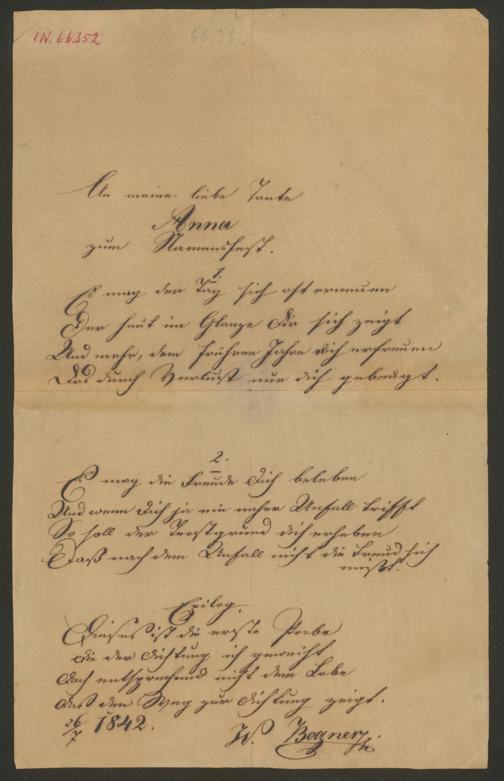 IN. 66.352
66.352
An meine liebe Tante
Anna
zum Namensfest.
1.
Es mag der Tag sich oft erneuen
Der heut im Glanze Dir sich zeigt
Und mehr, dem frühren Jahre dich erfreuen
Das durch Verlust nur dich gebeugt.
2.
Es mag die Freude Dich beleben
Und wenn Dich ja ein naher Unfall trifft
So soll der Trostgrund dich erheben
Daß nach dem Unfall nicht die Freud sich
mißt.
Epilog.
Dieses ist die erste Probe
die der Dichtung ich geweiht
doch entsprechend nicht dem Lobe
das den Weg zur Dichtung zeigt.
26/7 1842.
W. Bogner